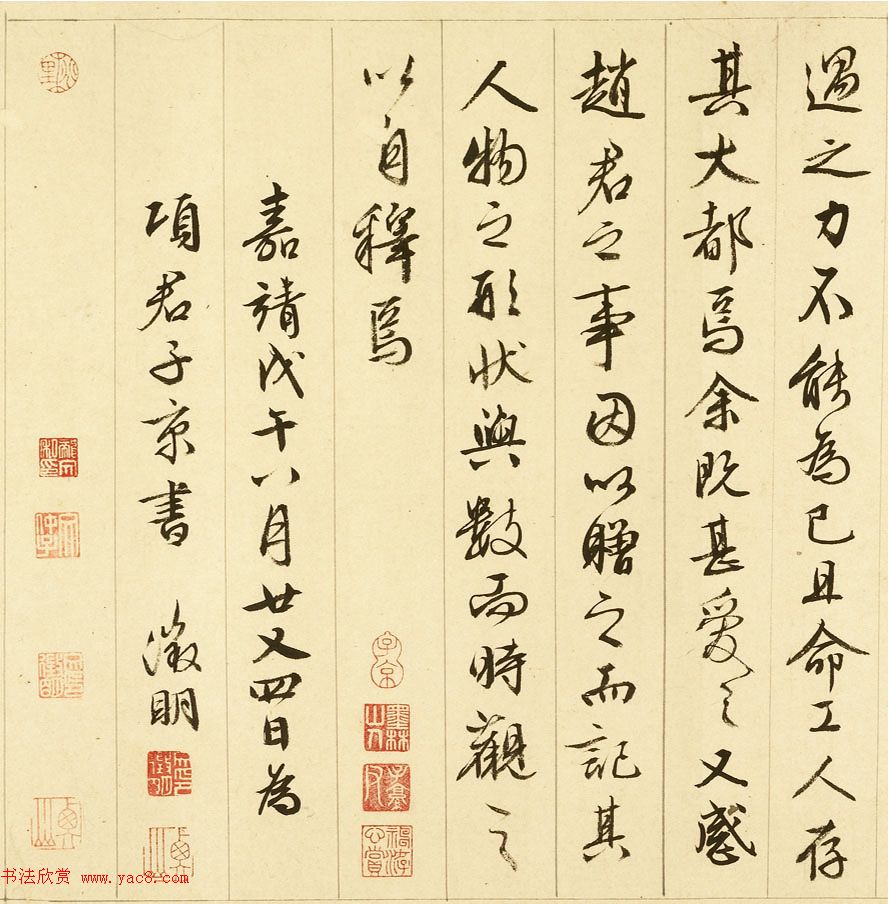 遇之力不能為已且命工人存
其大都焉余既甚愛之又感
趙君之事因以贈之而記其
人物之形狀與數而時觀之
以自釋焉
嘉靖戊午八月廿又四日為
項君子京書 徵明
子京
墨林山人
书法欣赏 www.yac8.com